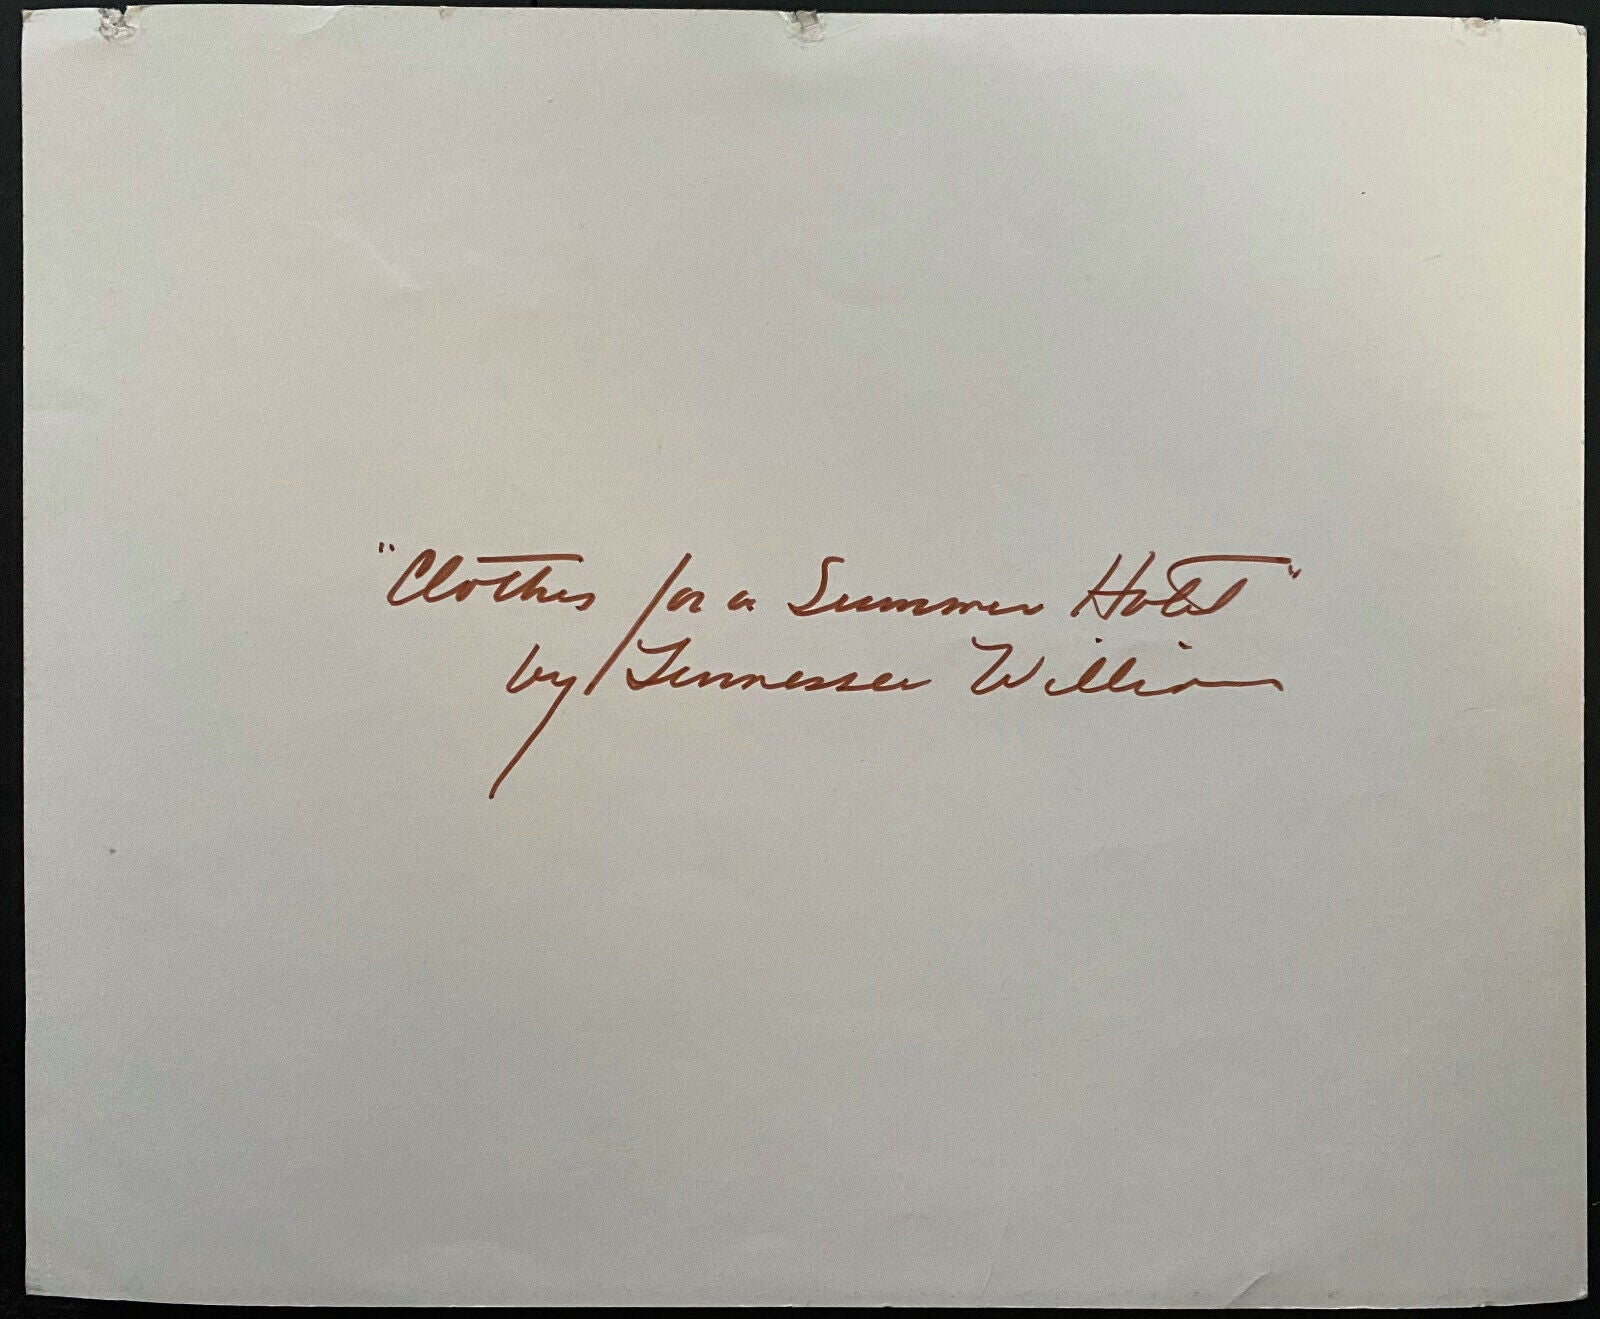 "Clothes for a Summer Hotel"
by Tennessee Williams